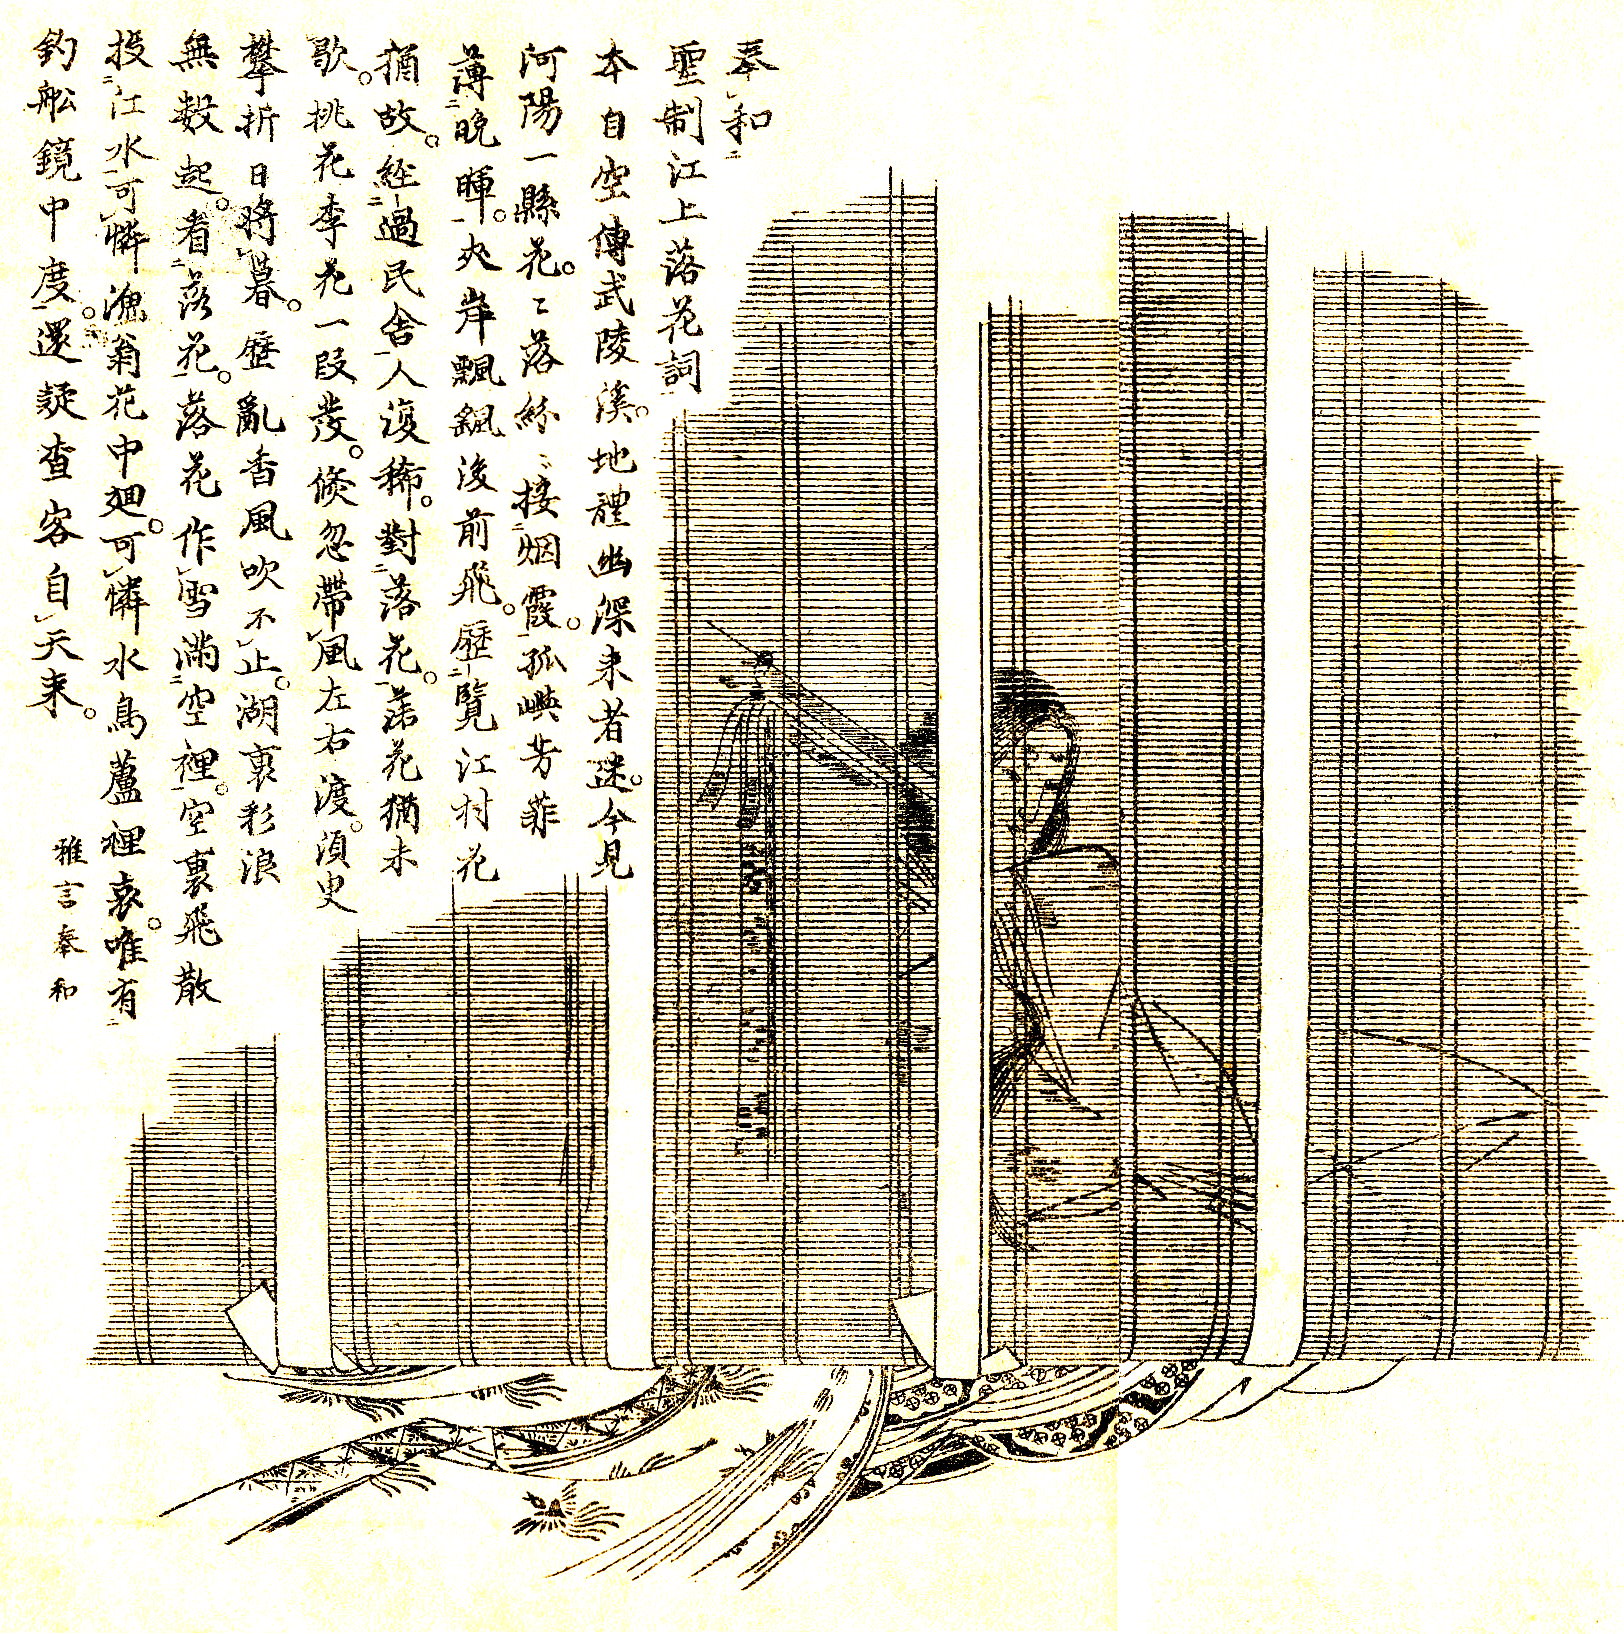 奉和
聖制江上落花詞
本自空傳武陵溪。地體幽深来者迷。今見
河陽一縣花。〻落紛〻接烟霞。孤嶼芳菲
薄晩暉。夾岸飄颻後前飛。歴覽江村花
猶故。經過民舎人復稀。對落花。落花猶未
歇。桃花李花一段發。倐忽帶風左右渡。須臾
攀折日將暮。歴亂香風吹不止。湖裏彩浪
無數起。看落花。落花作雪満空裡。空裏飛散
投江水。可憐漁翁花中廻。可憐水鳥蘆裡哀。唯有
釣舩鏡中度。還疑査客自天来。
雅言奉和